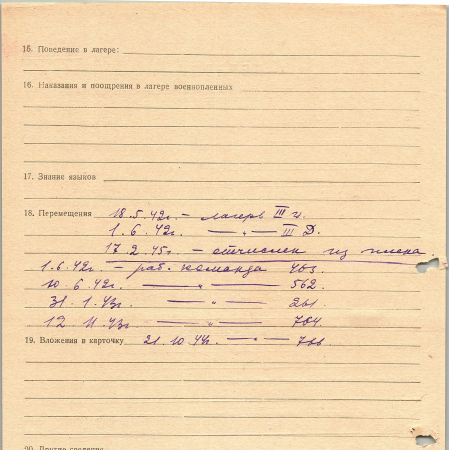 16. Поведение в лагере:
16. Наказания и поощрения в лагере военнопленных
17. Знание языков
18. Перемещения 18.5.42г. – лагерь III
1.6.42г. — „ — III Д.
17.2.45г. – отчислен из плена.
1.6.42г. – раб. команда
10.6.42г. — „ — 562.
31.1.43г — „ — 261.
12.11.43г — „ — 704.
19. Вложения в карточку 21.10.44г. — „ —
20. Другие сведения